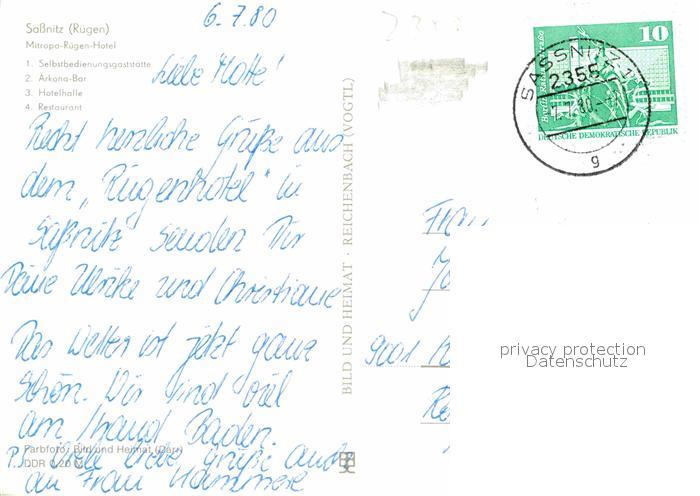 Saßnitz (Rügen)
Mitropa-Rügen-Hotel
1. Selbstbedienungsgaststätte
2. Arkona-Bar
3. Hotelhalle
4. Restaurant
6.7.80
Liebe Motte!
Recht herzliche Grüße aus
dem „Rügenhotel" in
Saßnitz senden Dir
Deine Ulrike und Christiane
Das Wetter ist jetzt ganz
schön. Wir sind viel
am Strand Baden.
P. Viele liebe Grüße auch
an Frau
Farbfoto: Bild und Heimat (Darr)
DDR 0,20 M
BILD UND HEIMAT · REICHENBACH (VOGTL)
10
DEUTSCHE DEMOKRATISCHE REPUBLIK
SASSNITZ 1
2355
g
9001
privacy protection
Datenschutz